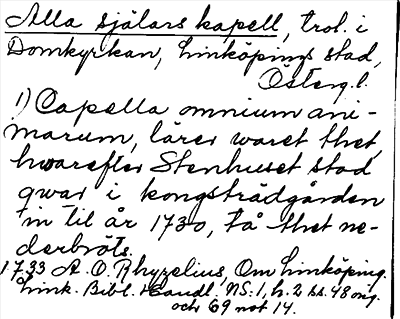 Alla själars kapell, trol. i
Domkyrkan, Linköpings stad,
Österg.l.
1) Capella omnium ani-
marum, lärer waret thet,
hwarefter Stenhuset stod
qwar i kongsträdgården
in til år 1730, tå thet ne-
derbröts.
1733 A. O. Rhyzelius, Om Linköping.
Link. Bibl. Handl. NS. 1, h. 2 ss. 48 mg.
och 69 not 14.